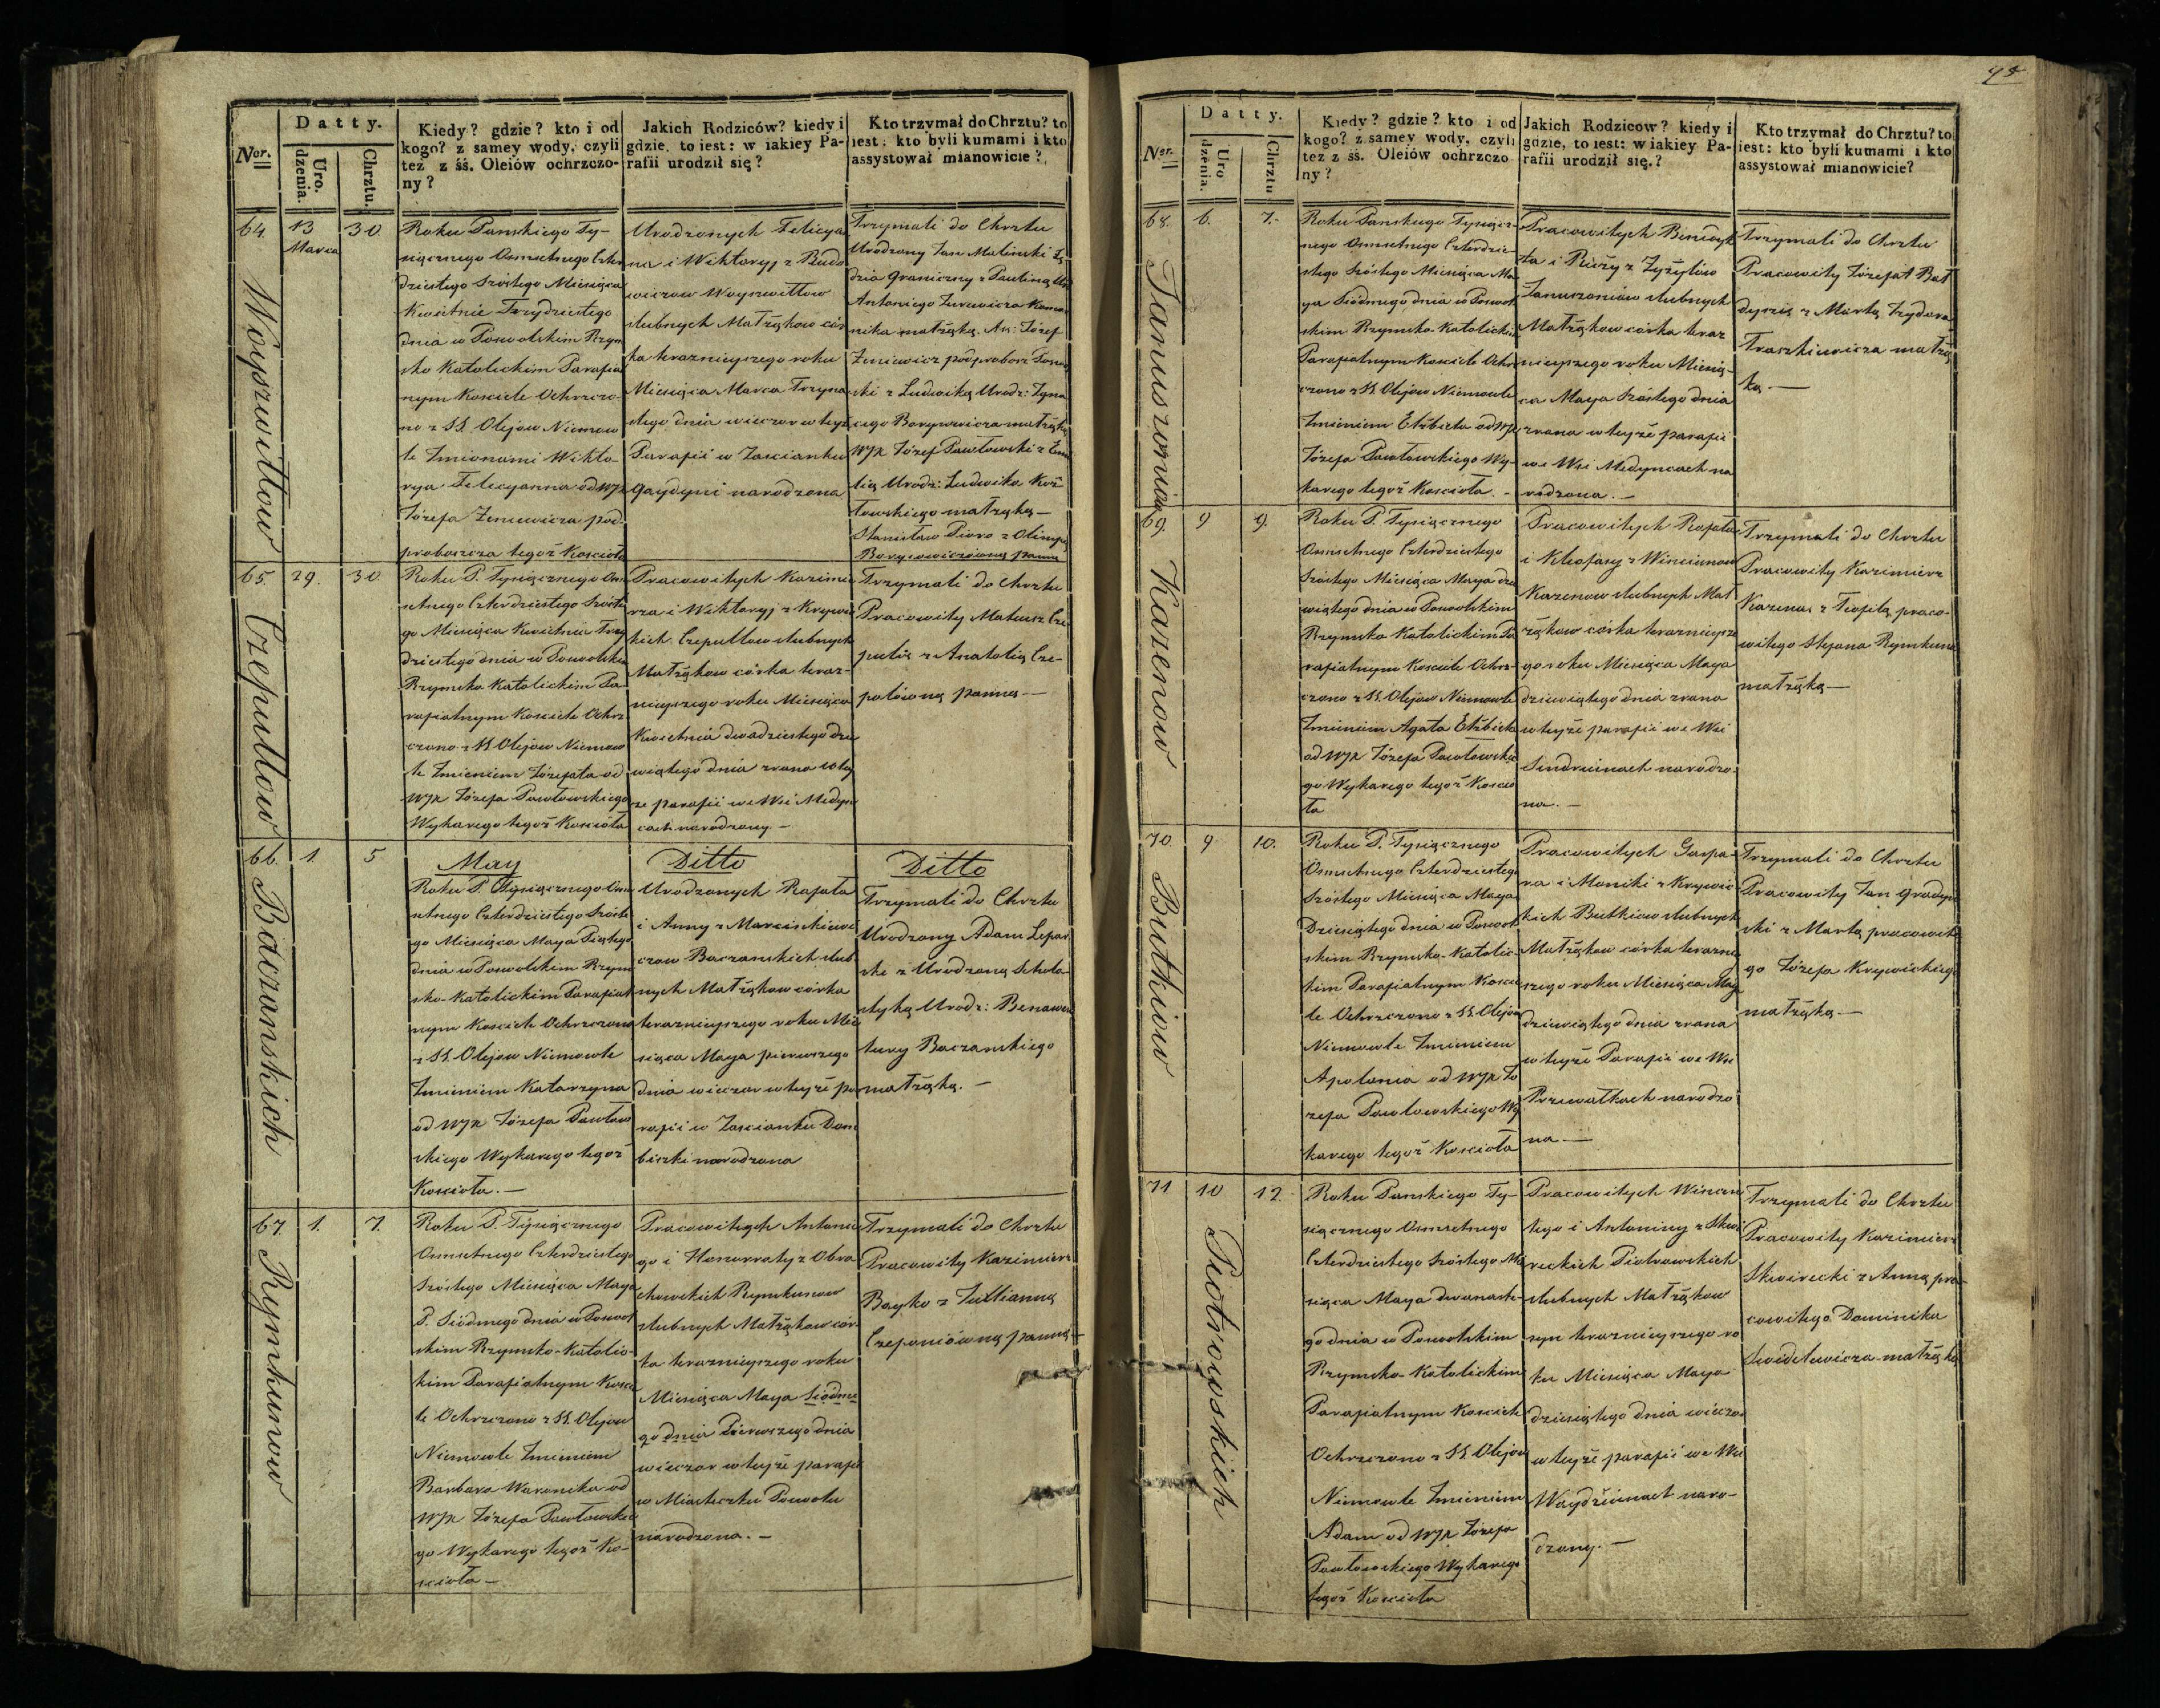 Ner.
Datty.
Uro.
dzenia.
Chrztu.
Kiedy? gdzie? kto i od
kogo? z samey wody, czyli
tez z śś. Oleiów ochrzczo-
ny?
Jakich Rodziców? kiedy i
gdzie, to iest: w iakiey Pa-
rafii urodził się?
Kto trzymał do Chrztu? to
iest: kto byli kumami i kto
assystował mianowicie?
64.
13
Marca
30.
Woyszwiłłow
Roku Panskiego Ty-
siącznego Osmsetnego Czter
dziestego Szóstego Miesiąca
Kwietnia Trzydziestego
dnia w Powolskim Rzym
sko Katolickim Parafial
nym Kosciele Ochrzczo-
no z SS. Olejow Niemow
le Imionami Wikto-
rya Felicyanna od WJX
Józefa Zeniewicza pod-
proboszcza tegoż Kosciola
Urodzonych Felicya
na i Wiktoryj z Budo
wiczow Woyszwiłłow
slubnych Małżąkow cór
ka terazniejszego roku
Miesiąca Marca Trzyna
stego dnia wieczor w teyż
Parafii w Zascianku
Gaydyni narodzona
Trzymali do Chrztu
Urodzony Jan Malinski Sę
dzia Graniczny z Pauliną Ur
Antoniego Jurewicza Komor
nika małżąką. As: Józef
Zeniewicz podprobosz Powol
ski z Ludwiką Urodz: Igna
cego Borysewicza małżąką
WJX Józef Pawłowski z Emi
lią Urodz: Ludwika Koz
łowskiego małżąką —
Stanisław Pioro z Olimpią
Borysowiczówną panną
65.
29.
30
Czepułłow
Roku P. Tysiącznego Osm
setnego Czterdziestego Szóste
go Miesiąca Kwietnia Trzy
dziestego dnia w Powolskim
Rzymsko Katolickim Pa-
rafialnym Kosciele Ochrz
czono z SS Olejow Niemow
le Imieniem Józefata od
WJX Józefa Pawłowskiego
Wykarego tegoż Kosciola
Pracowitych Kazimie
rza i Wiktoryj z Krywic
kich Czepułłow slubnych
Małżąkow córka teraz-
nieyszego roku Miesiąca
Kwietnia dwadziestego dzie
wiątego dnia zrana w tey
ze parafii we Wsi Medyn
cach narodzony —
Trzymali do Chrztu
Pracowity Mateusz Cze-
pulis z Anatolią Cze-
pulówną panną —
66.
1.
5
Bączanskich
May
Roku P. Tysiącznego Osm
setnego Czterdziestego Szóste
go Miesiąca Maya Piątego
dnia w Powolskim Rzym
sko-Katolickim Parafial
nym Kosciele Ochrzczono
z SS. Olejow Niemowle
Imieniem Katarzyna
od WJX Józefa Pawłow
skiego Wykarego tegoż
Kosciola. —
Ditto
Urodzonych Rafała
i Anny z Marcinkiewi
czow Baczanskich slub
nych Małżąkow córka
terazniejszego roku Mie
siąca Maya pierwszego
dnia wieczor w teyże pa
rafii w Zascianku Dam
biszki narodzona
Ditto
Trzymali do Chrztu
Urodzony Adam Lepar
ski z Urodzoną Schola-
styką Urodz: Benawen
tury Baczanskiego
małżąką. —
67.
1.
7.
Rymkunow
Roku P. Tysiącznego
Osmsetnego Czterdziestego
Szóstego Miesiąca Maya
P. Siódmego dnia w Powol
skim Rzymsko-Katolic-
kim Parafialnym Kosce
le Ochrzczono z SS. Olejow
Niemowle Imieniem
Barbara Waronika od
WJX Józefa Pawłowskie
go Wykarego tegoż Ko-
sciola —
Pracowitych Antonie
go i Honorraty z Obra
chowskich Rymkunow
slubnych Małżąkow cór-
ka terazniejszego roku
Miesiąca Maya Siódme
go dnia Pierwszego dnia
wieczor w teyże parafii
w Miasteczku Powolu
narodzona. —
Trzymali do Chrztu
Pracowity Kazimierz
Bayko z Jullianną
Czeponiówną panną —
Ner.
Datty.
Uro
dzenia.
Chrztu
Kiedy? gdzie? kto i od
kogo? z samey wody, czyli
tez z śś. Oleiów ochrzczo
ny?
Jakich Rodzicow? kiedy i
gdzie, to iest: w iakiey Pa-
rafii urodził się.?
Kto trzymał do Chrztu? to
iest: kto byli kumami i kto
assystował mianowicie?
68.
6.
7.
Januszoniow
Roku Panskiego Tysiącz-
nego Osmsetnego Czterdzie-
stego Szóstego Miesiąca Ma
ya Siódmego dnia w Powol
skim Rzymsko-Katolickim
Parafialnym Kosciele Ochrz
czono z SS. Olejow Niemowle
Imieniem Elżbieta od WJX
Józefa Pawłowskiego Wy-
karego tegoż Kosciola. —
Pracowitych Benedyk
ta i Rózy z Zyżylów
Januszoniów slubnych
Małżąkow córka teraz
nieyszego roku Miesią-
ca Maya Szóstego dnia
zrana w teyże parafii
we Wsi Medyncach na
rodzona. —
Trzymali do Chrztu
Pracowity Józefat Bał
dyszis z Martą Izydora
Traszkiewicza małżą
ką. —
69.
9
9.
Kazenow
Roku P. Tysiącznego
Osmsetnego Czterdziestego
Szóstego Miesiąca Maya dzie
wiątego dnia w Powolskim
Rzymsko Katolickim Pa
rafialnym Kosciele Ochrz-
czono z SS. Olejow Niemowle
Imieniem Agata Elżbieta
od WJX Józefa Pawłowskie
go Wykarego tegoż Koscio
ła
Pracowitych Rafała
i Kleofasy z Winciunow
Kazenow slubnych Mał
żąkow córka terazniejsze
go roku Miesiąca Maya
dziewiątego dnia zrana
w teyże parafii we Wsi
Sindriunach narodzo-
na. —
Trzymali do Chrztu
Pracowity Kazimierz
Kazenas z Teofilą praco-
witego Stefana Rymkuna
małżąką —
70.
9
10.
Butkiow
Roku P. Tysiącznego
Osmsetnego Czterdziestego
Szóstego Miesiąca Maya
Dziesiątego dnia w Powol
skim Rzymsko-Katolic-
kim Parafialnym Koscie
le Ochrzczono z SS. Olejow
Niemowle Imieniem
Apolonia od WJX Jó
zefa Pawłowskiego Wy
karego tegoż Kosciola
Pracowitych Gaspa-
ra i Moniki z Krywic
kich Butkiow slubnych
Małżąkow córka teraznie
szego roku Miesiąca May
dziewiątego dnia zrana
w teyże Parafii we Wsi
Przewałkach narodzo
na —
Trzymali do Chrztu
Pracowity Jan Gradyn
ski z Martą pracowite
go Józefa Krywickiego
małżąką —
71
10
12.
Piotrowskich
Roku Panskiego Ty-
siącznego Osmsetnego
Czterdziestego Szóstego Mie
siąca Maya dwunaste-
go dnia w Powolskim
Rzymsko-Katolickim
Parafialnym Kosciele
Ochrzczono z SS Olejow
Niemowle Imieniem
Adam od WJX Józefa
Pawłowskiego Wykarego
tegoż Kosciola
Pracowitych Wincen
tego i Antoniny z Skwi
reckich Piotrowskich
slubnych Małżąkow
syn terazniejszego ro
ku Miesiąca Maya
dziesiątego dnia wieczor
w teyże parafii we Wsi
Waydżiunach naro-
dzony. —
Trzymali do Chrztu
Pracowity Kazimierz
Skwirecki z Anną pra-
cowitego Dominika
małżąką